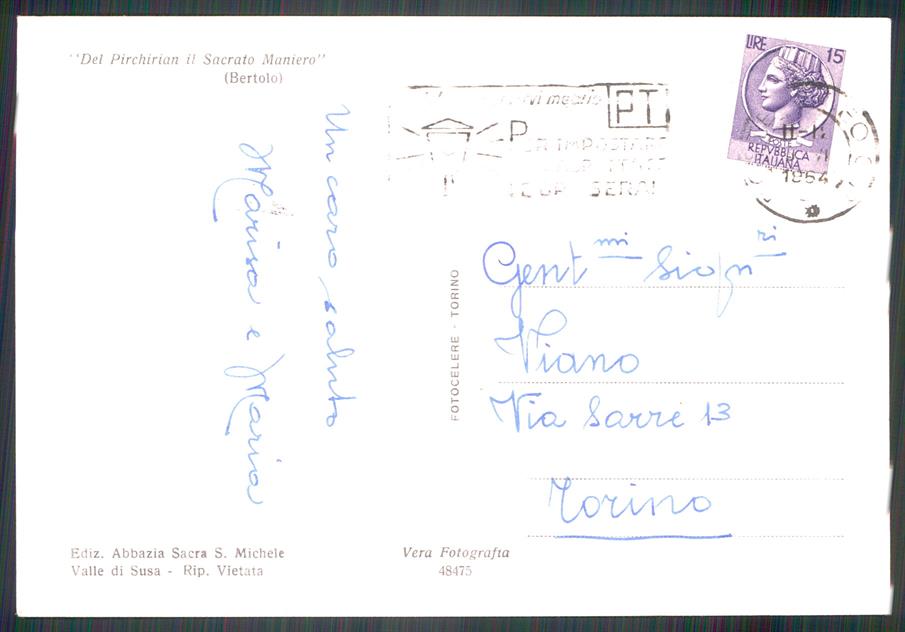 "Del Pirchirian il Sacrato Maniero"
(Bertolo)
Un caro saluto
Marisa e Maria
meglio
PT
PER IMPOSTARE
SERA
LIRE 15
POSTE
REPVBBLICA
ITALIANA
1954
Gent mi Sign ri
Viano
Via Sarre 13
Torino
FOTOCELERE - TORINO
Ediz. Abbazia Sacra S. Michele
Valle di Susa - Rip. Vietata
Vera Fotografia
48475